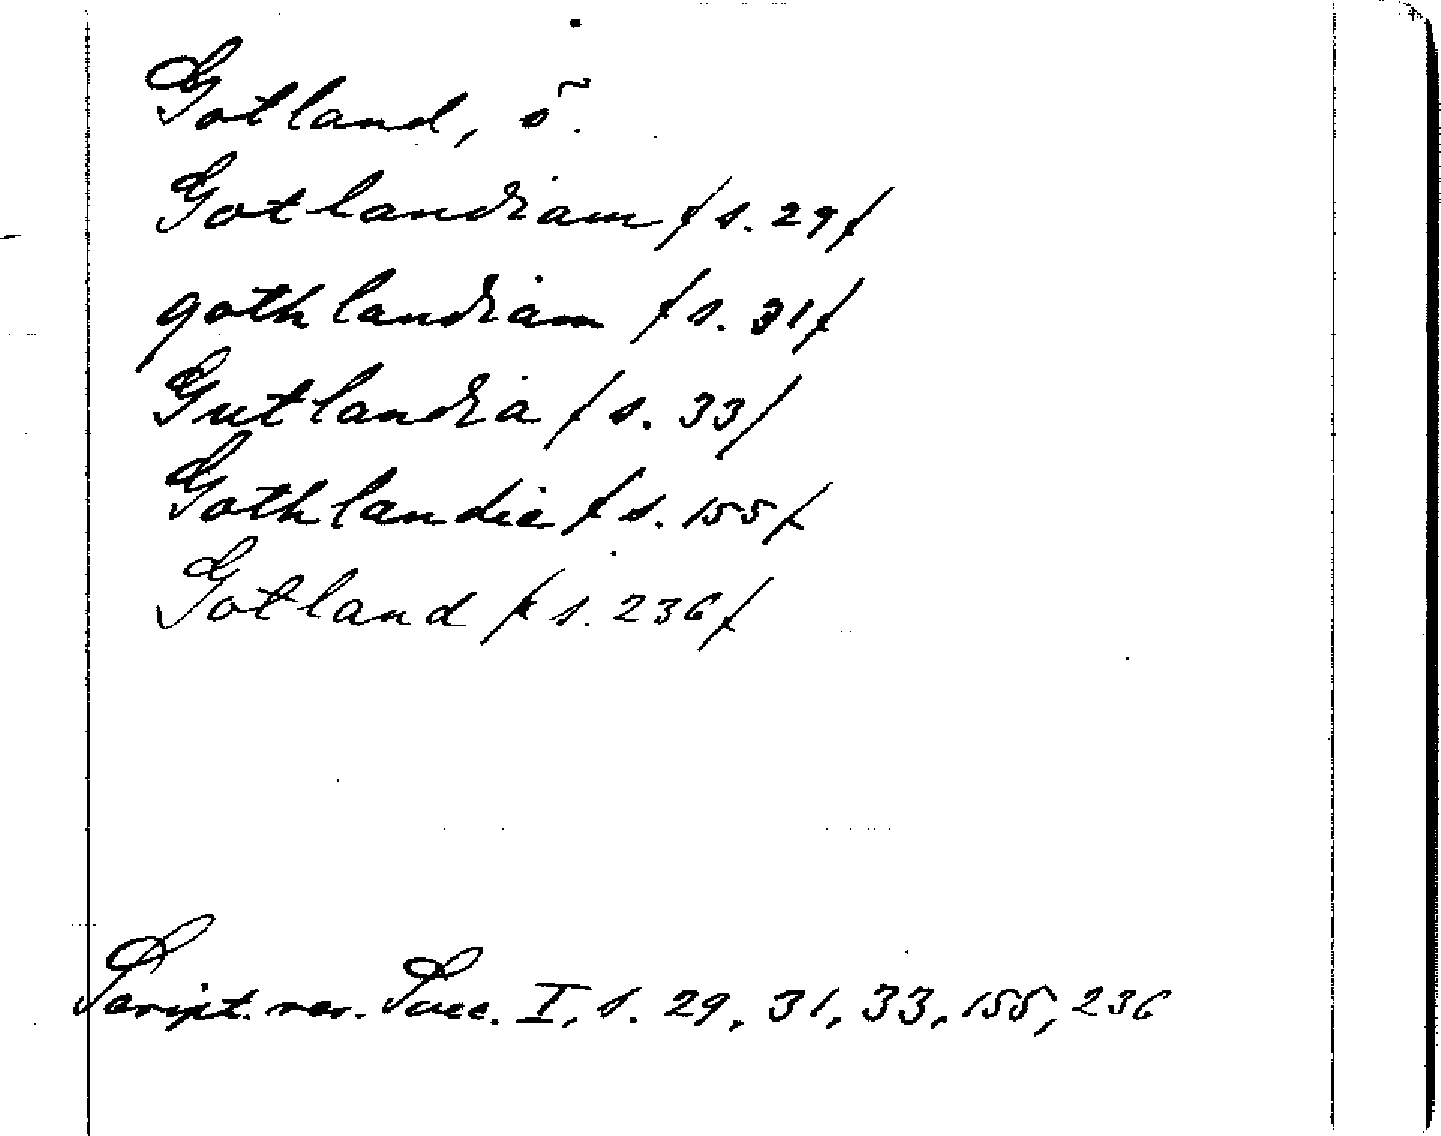 Gotland, ö.
Gotlandiam / s. 29 /
gothlandiam / s. 31 /
Gutlandia / s. 33 /
Gothlandie / s. 155 /
Gotland / s. 236 /
Script. rer. Suec. I, s. 29, 31, 33, 155, 236